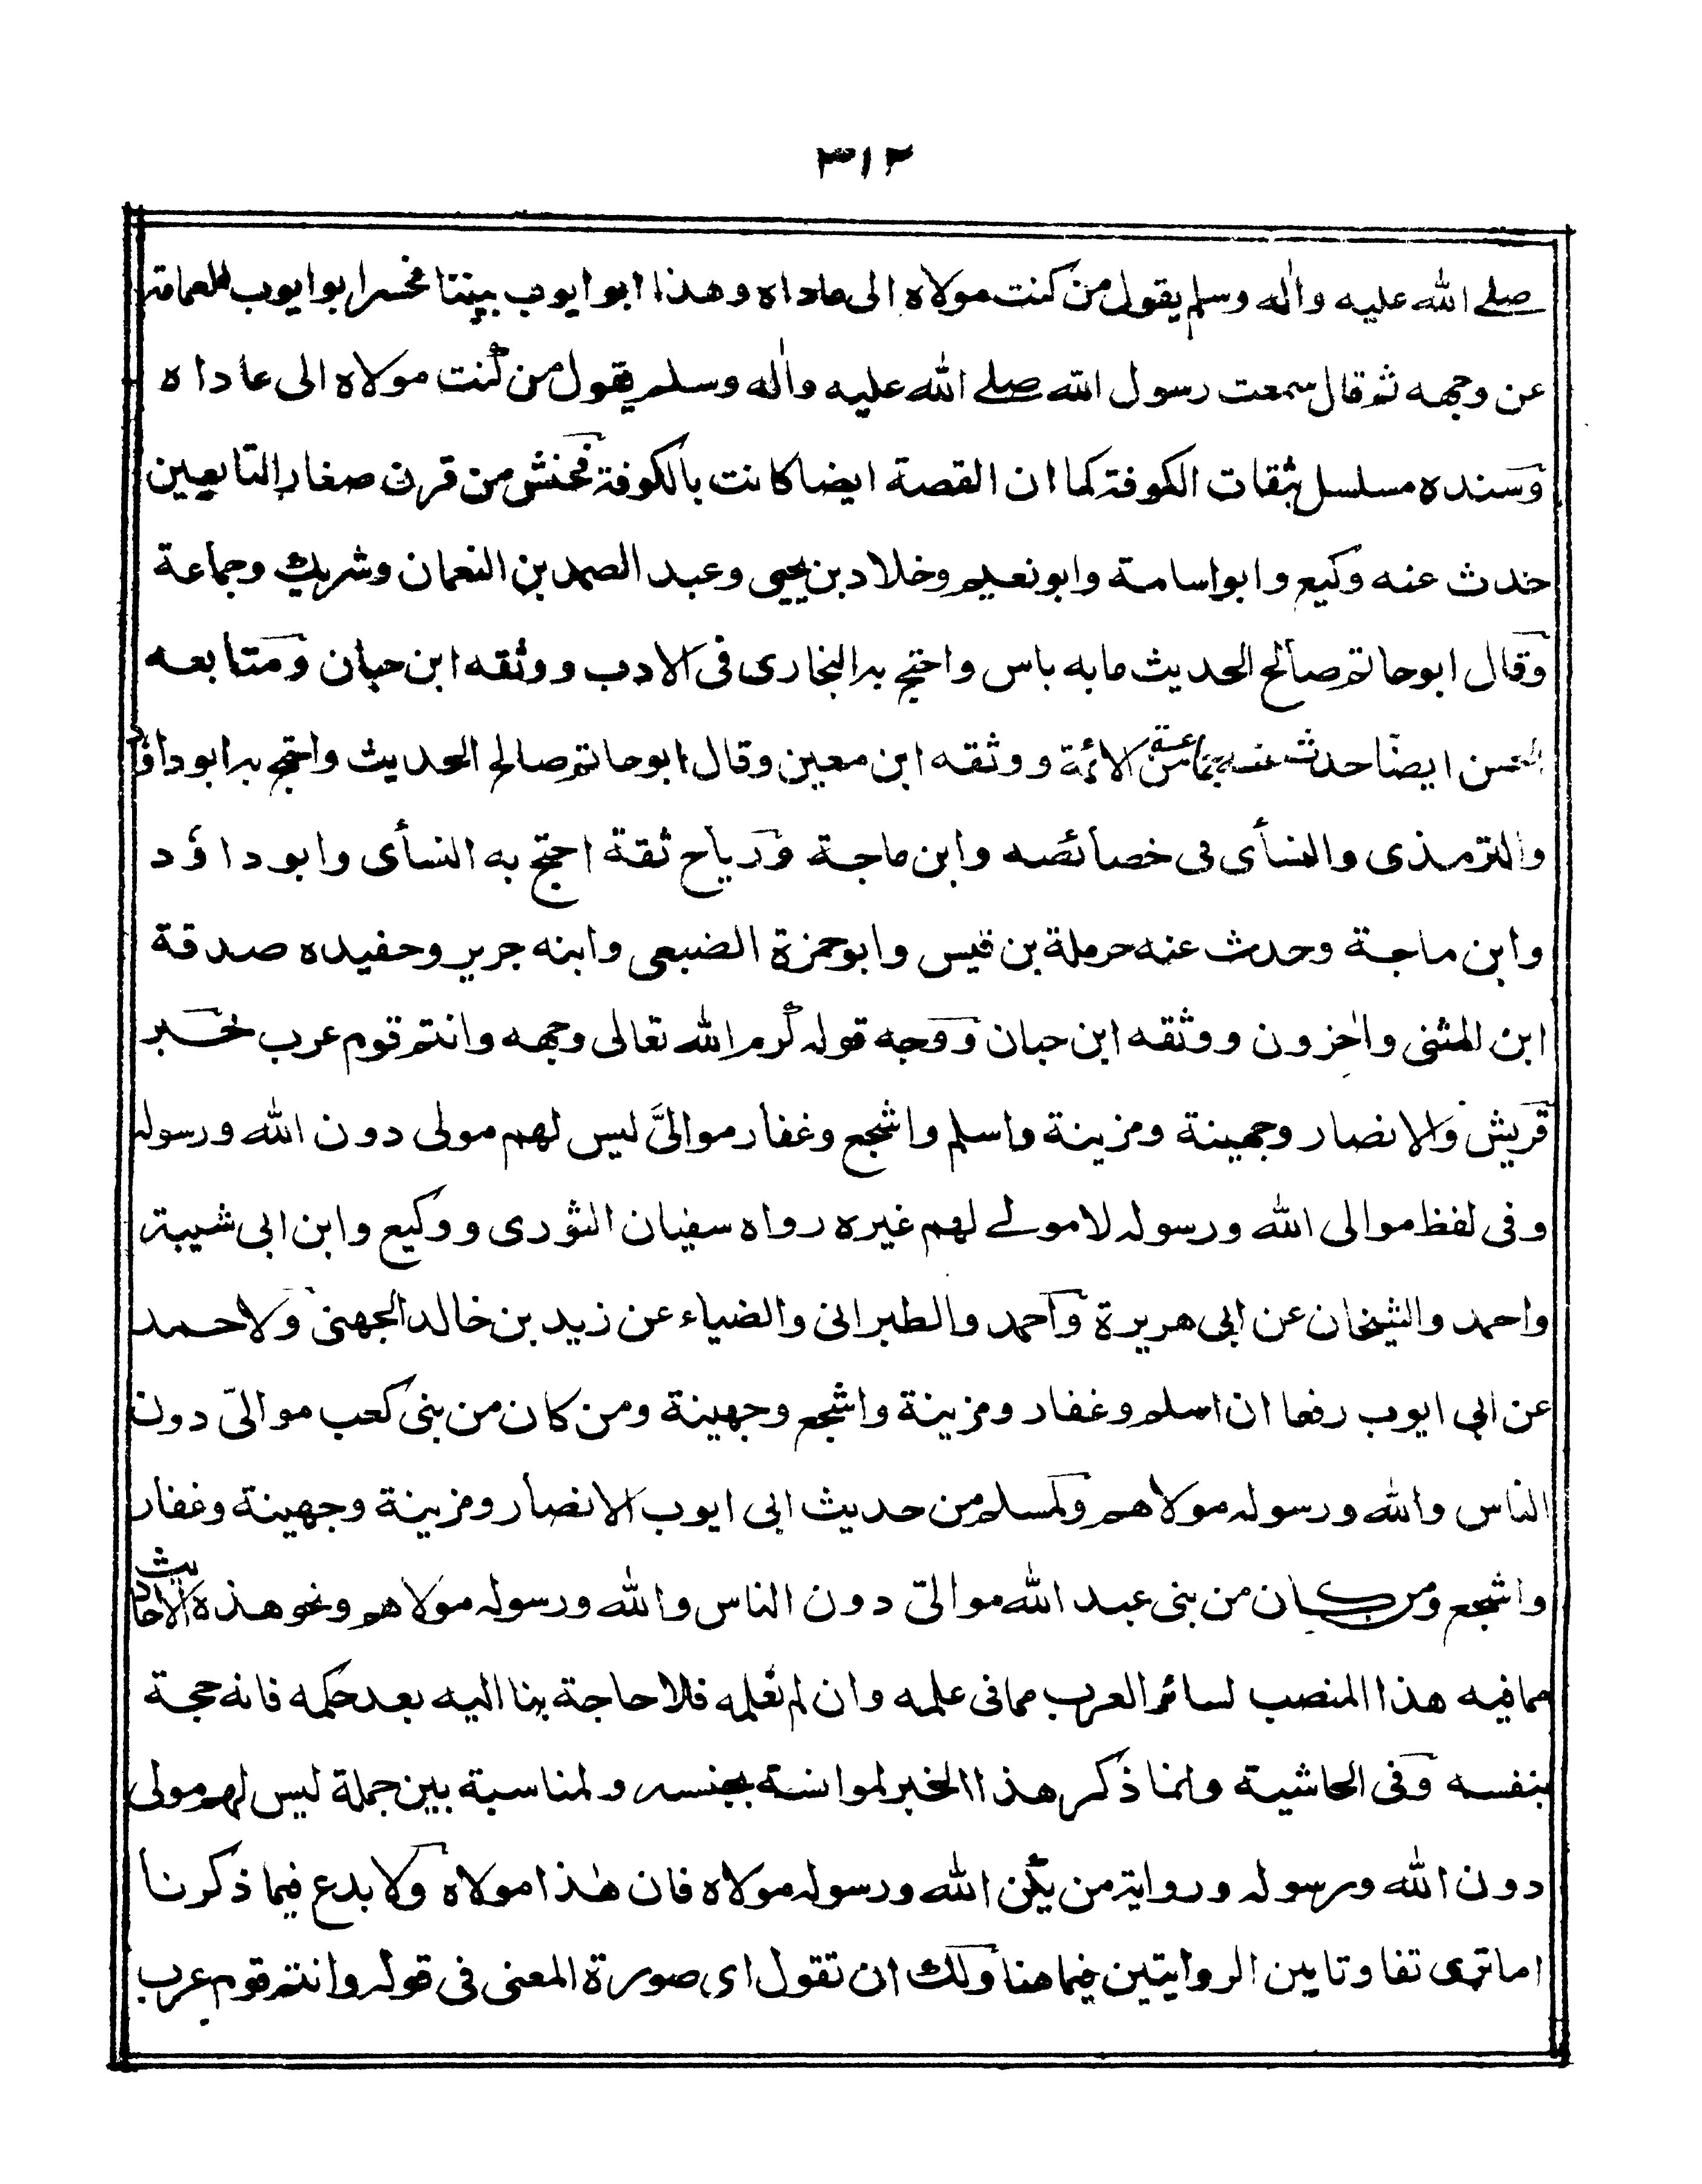 ٣١٢
صلے الله عليه واٰله وسلم يقول من كنت مولاه الى عاداه وهذا ابو ايوب بيننا فحسر ابو ايوب العمامة
عن وجهه ثم قال سمعت رسول الله صلے الله عليه واٰله وسلم يقول من كنت مولاه الى عاداه
وسنده مسلسل بثقات الكوفة كما ان القصة ايضا كانت بالكوفة فحنش من قرن صغار التابعين
حدث عنه وكيع وابو اسامة وابو نعيم وخلاد بن يحيى وعبد الصمد بن النعمان وشريك وجماعة
وقال ابو حاتم صالح الحديث ما به باس واحتج به البخارى فى الادب ووثقه ابن حبان ومتابعه
الحسن ايضا حدث عنه جماعة من الائمة ووثقه ابن معين وقال ابو حاتم صالح الحديث واحتج به ابو داؤد
والترمذى والنسأى فى خصائصه وابن ماجة ورياح ثقة احتج به النسأى وابو داؤد
وابن ماجة وحدث عنه حرملة بن قيس وابو حمزة الضبعى وابنه جرير وحفيده صدقة
ابن المثنى واٰخرون ووثقه ابن حبان ووجه قوله كرم الله تعالى وجهه وانتم قوم عرب خبر
قريش والانصار وجهينة ومزينة واسلم واشجع وغفار موالىَّ ليس لهم مولى دون الله ورسوله
وفى لفظ موالى الله ورسوله لا مولے لهم غيره رواه سفيان الثورى ووكيع وابن ابى شيبة
واحمد والشيخان عن ابى هريرة واحمد والطبرانى والضياء عن زيد بن خالد الجهنى ولاحمد
عن ابى ايوب رفعا ان اسلم وغفار ومزينة واشجع وجهينة ومن كان من بنى كعب موالىّ دون
الناس والله ورسوله مولاهم ولمسلم من حديث ابى ايوب الانصار ومزينة وجهينة وغفار
واشجع ومن كان من بنى عبد الله موالىّ دون الناس والله ورسوله مولاهم ونحو هذه الاحاديث
مما فيه هذا المنصب لسائر العرب مما فى علمه وان لم نعلمه فلا حاجة بنا اليه بعد حكمه فانه حجة
بنفسه وفى الحاشية وانما ذكر هذا الخبر لموانسة بجنسه ولمناسبة بين جملة ليس لهم مولى
دون الله ورسوله ورواية من يكن الله ورسوله مولاه فان هٰذا مولاه ولا بدع فيما ذكرنا
اما ترى تفاوتا بين الروايتين فيما هنا ولك ان تقول اى صورة المعنى فى قوله وانتم قوم عرب